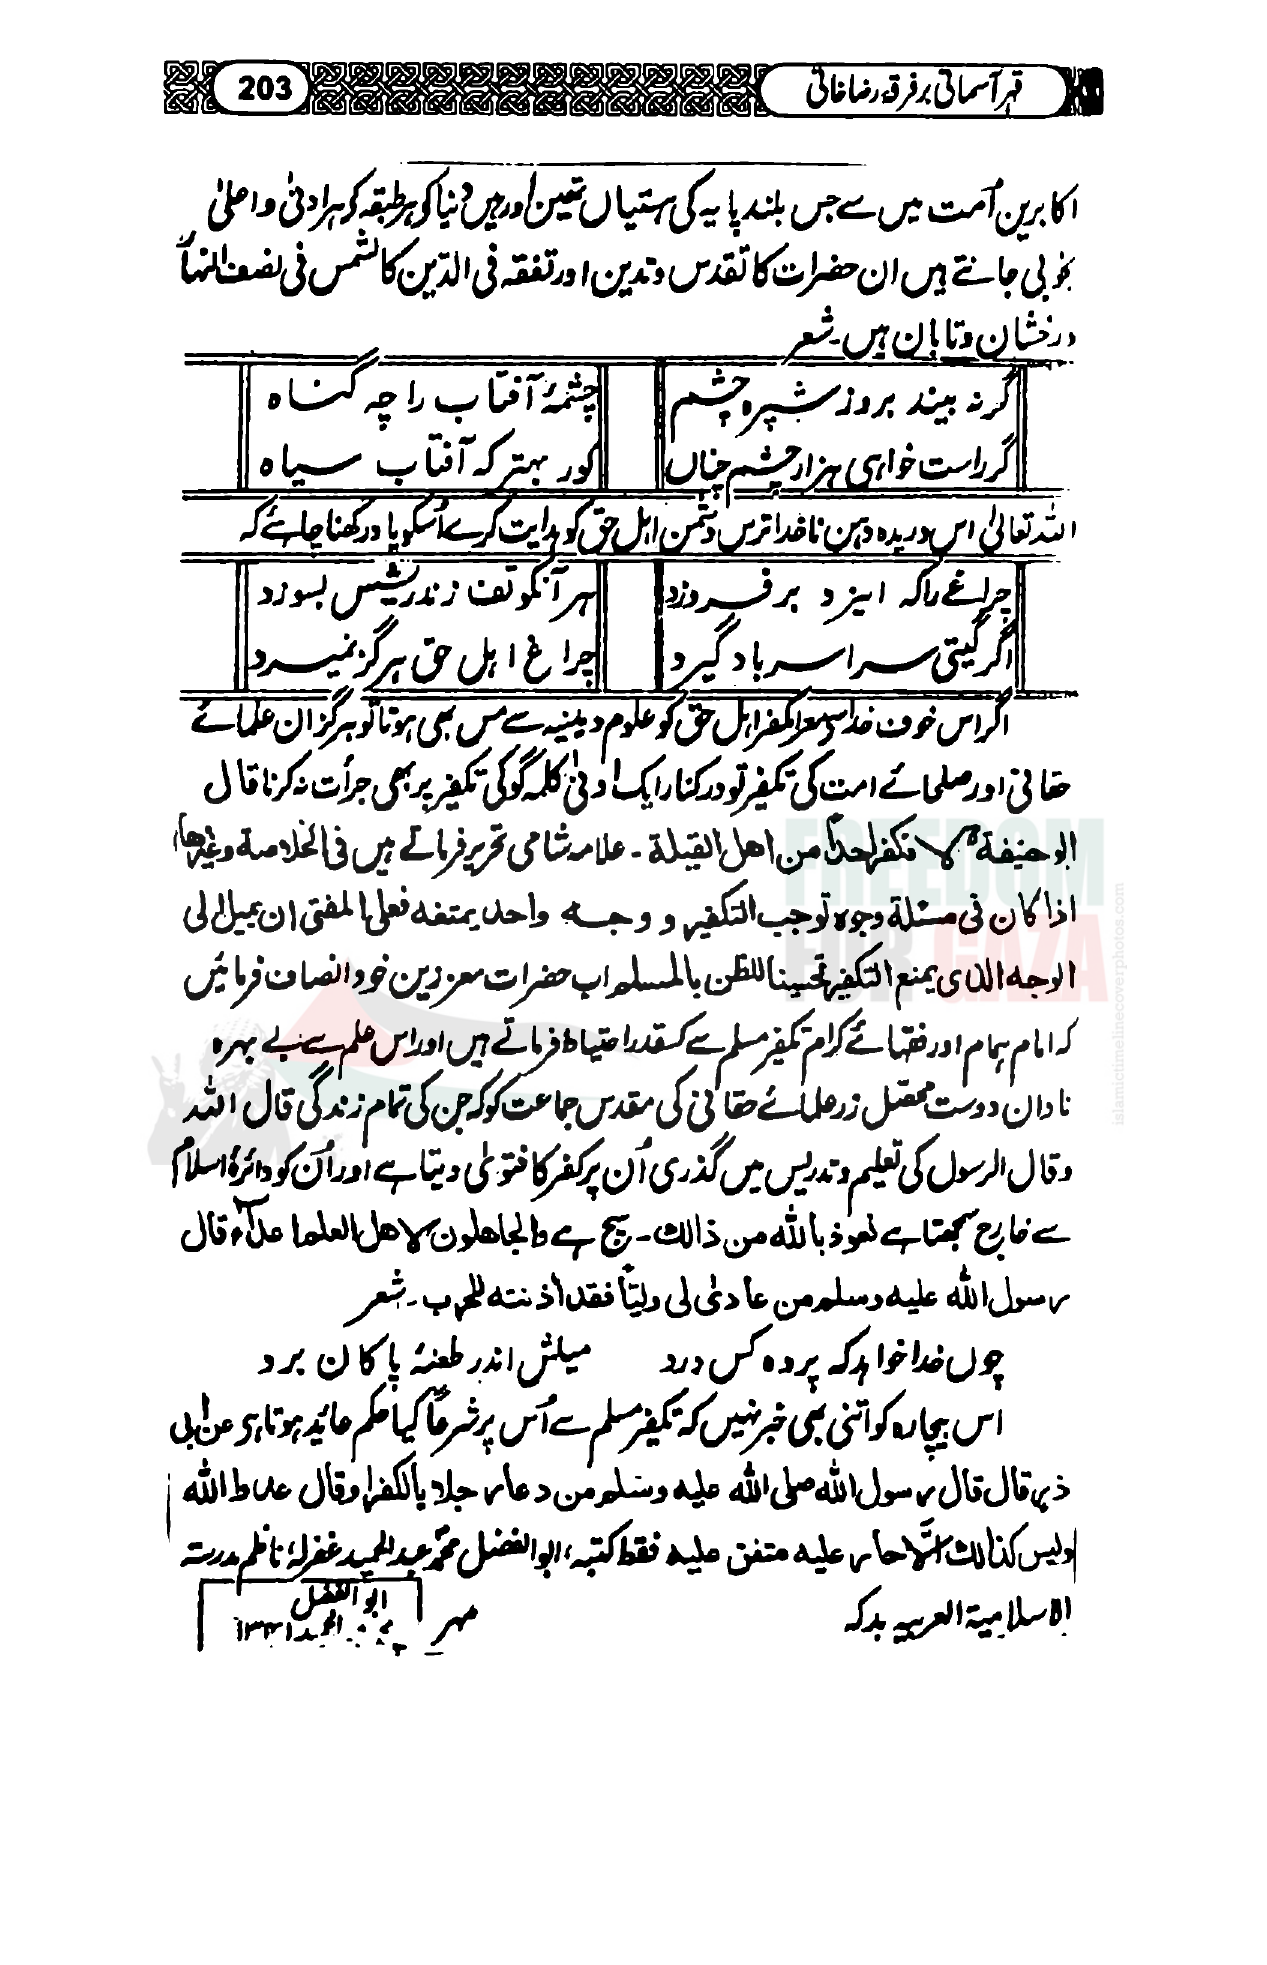 قہر آسمانی بر فرقہ رضا خانی
203
اکابرین اُمت میں سے جس بلند پایہ کی ہستیاں تھیں اور ہیں دنیا کو ہر طبقہ کو ہر ادنیٰ و اعلیٰ
بخوبی جانتے ہیں ان حضرات کا تقدس و تدین اور تفقہ فی الدین کالشمس فی نصف النہار
درخشان و تابان ہیں۔ شعر
گر نہ بیند بروز شپرہ چشم چشمۂ آفتاب را چہ گناہ
گر راست خواہی ہزار چشم چناں کور بہتر کہ آفتاب سیاہ
اللہ تعالیٰ اس دریدہ دہن ناخدا ترس دشمن اہل حق کو ہدایت کرے اُسکو یاد رکھنا چاہئے کہ
چراغے را کہ ایزد بر فروزد ہر آنکو تف زند ریشش بسوزد
اگر گیتی سراسر باد گیرد چراغ اہل حق ہرگز نمیرد
اگر اس خوف خدا مکفر اہل حق کو علوم دینیہ سے مس بھی ہوتا تو ہرگز ان علمائے
حقانی اور صلحائے امت کی تکفیر تو درکنار ایک ادنیٰ کلمہ گو کی تکفیر پر بھی جرأت نہ کرتا قال
ابو حنیفة لا نکفر احداً من اهل القبلة ۔ علامہ شامی تحریر فرماتے ہیں فی الخلاصة وغیرها
اذا کان فی مسئلة وجوه توجب التکفیر و وجه واحد یمنعه فعلی المفتی ان یمیل الی
الوجه الذی یمنع التکفیر تحسیناً للظن بالمسلم اب حضرات معززین خود انصاف فرمائیں
کہ امام ہمام اور فقہائے کرام تکفیر مسلم سے کسقدر احتیاط فرماتے ہیں اور اس علم سے بے بہرہ
نادان دوست زر علمائے حقانی کی مقدس جماعت کو کہ جن کی تمام زندگی قال اللہ
وقال الرسول کی تعلیم و تدریس میں گذری اُن پر کفر کا فتویٰ دیتا ہے اور اُن کو دائرۂ اسلام
سے خارج سمجھتا ہے نعوذ باللہ من ذالک ۔ سچ ہے والجاهلون لاهل العلم اعداء قال
رسول اللہ علیه وسلم من عادیٰ لی ولیّاً فقد اٰذنته للحرب ۔ شعر
چوں خدا خواہد کہ پردہ کس درد میلش اندر طعنۂ پاکان برد
اس بیچارہ کو اتنی بھی خبر نہیں کہ تکفیر مسلم سے اُس پر شرعاً کیا حکم عائد ہوتا ہے عن ابی
ذر قال قال رسول اللہ صلی اللہ علیه وسلم من دعا رجلا بالکفر او قال عدو اللہ
ولیس کذالک الّا حار علیه متفق علیه فقط کتبہ، ابو الفضل محمد عبد الحمید غفرلہ، ناظم مدرسۃ
الاسلامیۃ العربیہ بدکہ
مہر
ابو الفضل